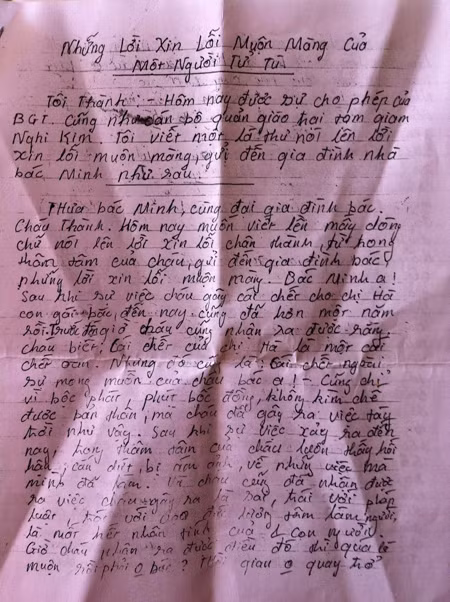 Những Lời Xin Lỗi Muộn Màng Của
Một Người Tử Tù
Tôi Thành :- Hôm nay được sự cho phép của
BGT. Cũng như cán bộ quản giáo hai tam giam
Nghi Kim. Tôi viết một lá thư nói lên lời
xin lỗi muộn màng, gửi đến gia đình nhà
bác Minh như sau.
Thưa bác Minh, cùng đại gia đình bác.
Cháu Thành. Hôm nay muốn viết lên mấy dòng
chữ nói lên lời xin lỗi chân thành, từ trong
thâm tâm của cháu, gửi đến gia đình bác
những lời xin lỗi muộn màng. Bác Minh ạ!
Sau khi sự việc cháu gây cái chết cho chị Hà
con gái bác, đến nay cũng đã hơn một năm
rồi. Trước giờ cháu cũng nhận ra được rằng.
cháu biết, cái chết của chị Hà là một cái
chết oan. Nhưng đó cũng là cái chết ngoài
sự mong muốn của cháu bác ạ! - Cũng chỉ
vì bộc phát, phút bốc đồng, không kìm chế
được bản thân, mà cháu đã gây ra việc tày
trời như vậy. Sau khi sự việc xảy ra đến
nay, trong thâm tâm của cháu luôn thấy hối
hận, cắn dứt, bị ám ảnh, về những việc mà
mình đã làm. Vì cháu cũng đã nhận được
ra việc cháu gây ra là sai trái với pháp
luật, với lương tâm làm người,
là mất hết nhân tính của 1 con người.
Giờ cháu nhận ra được điều đó thì quá
muộn rồi phải o bác? Thời gian o quay trở